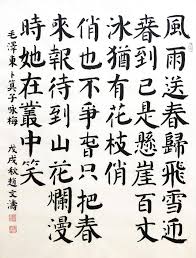 風雨送春歸飛雪迎
春到已是懸崖百丈
冰猶有花枝俏
俏也不爭春只把春
來報待到山花爛漫
時她在叢中笑
毛澤東卜算子咏梅
戊戌秋趙文濤